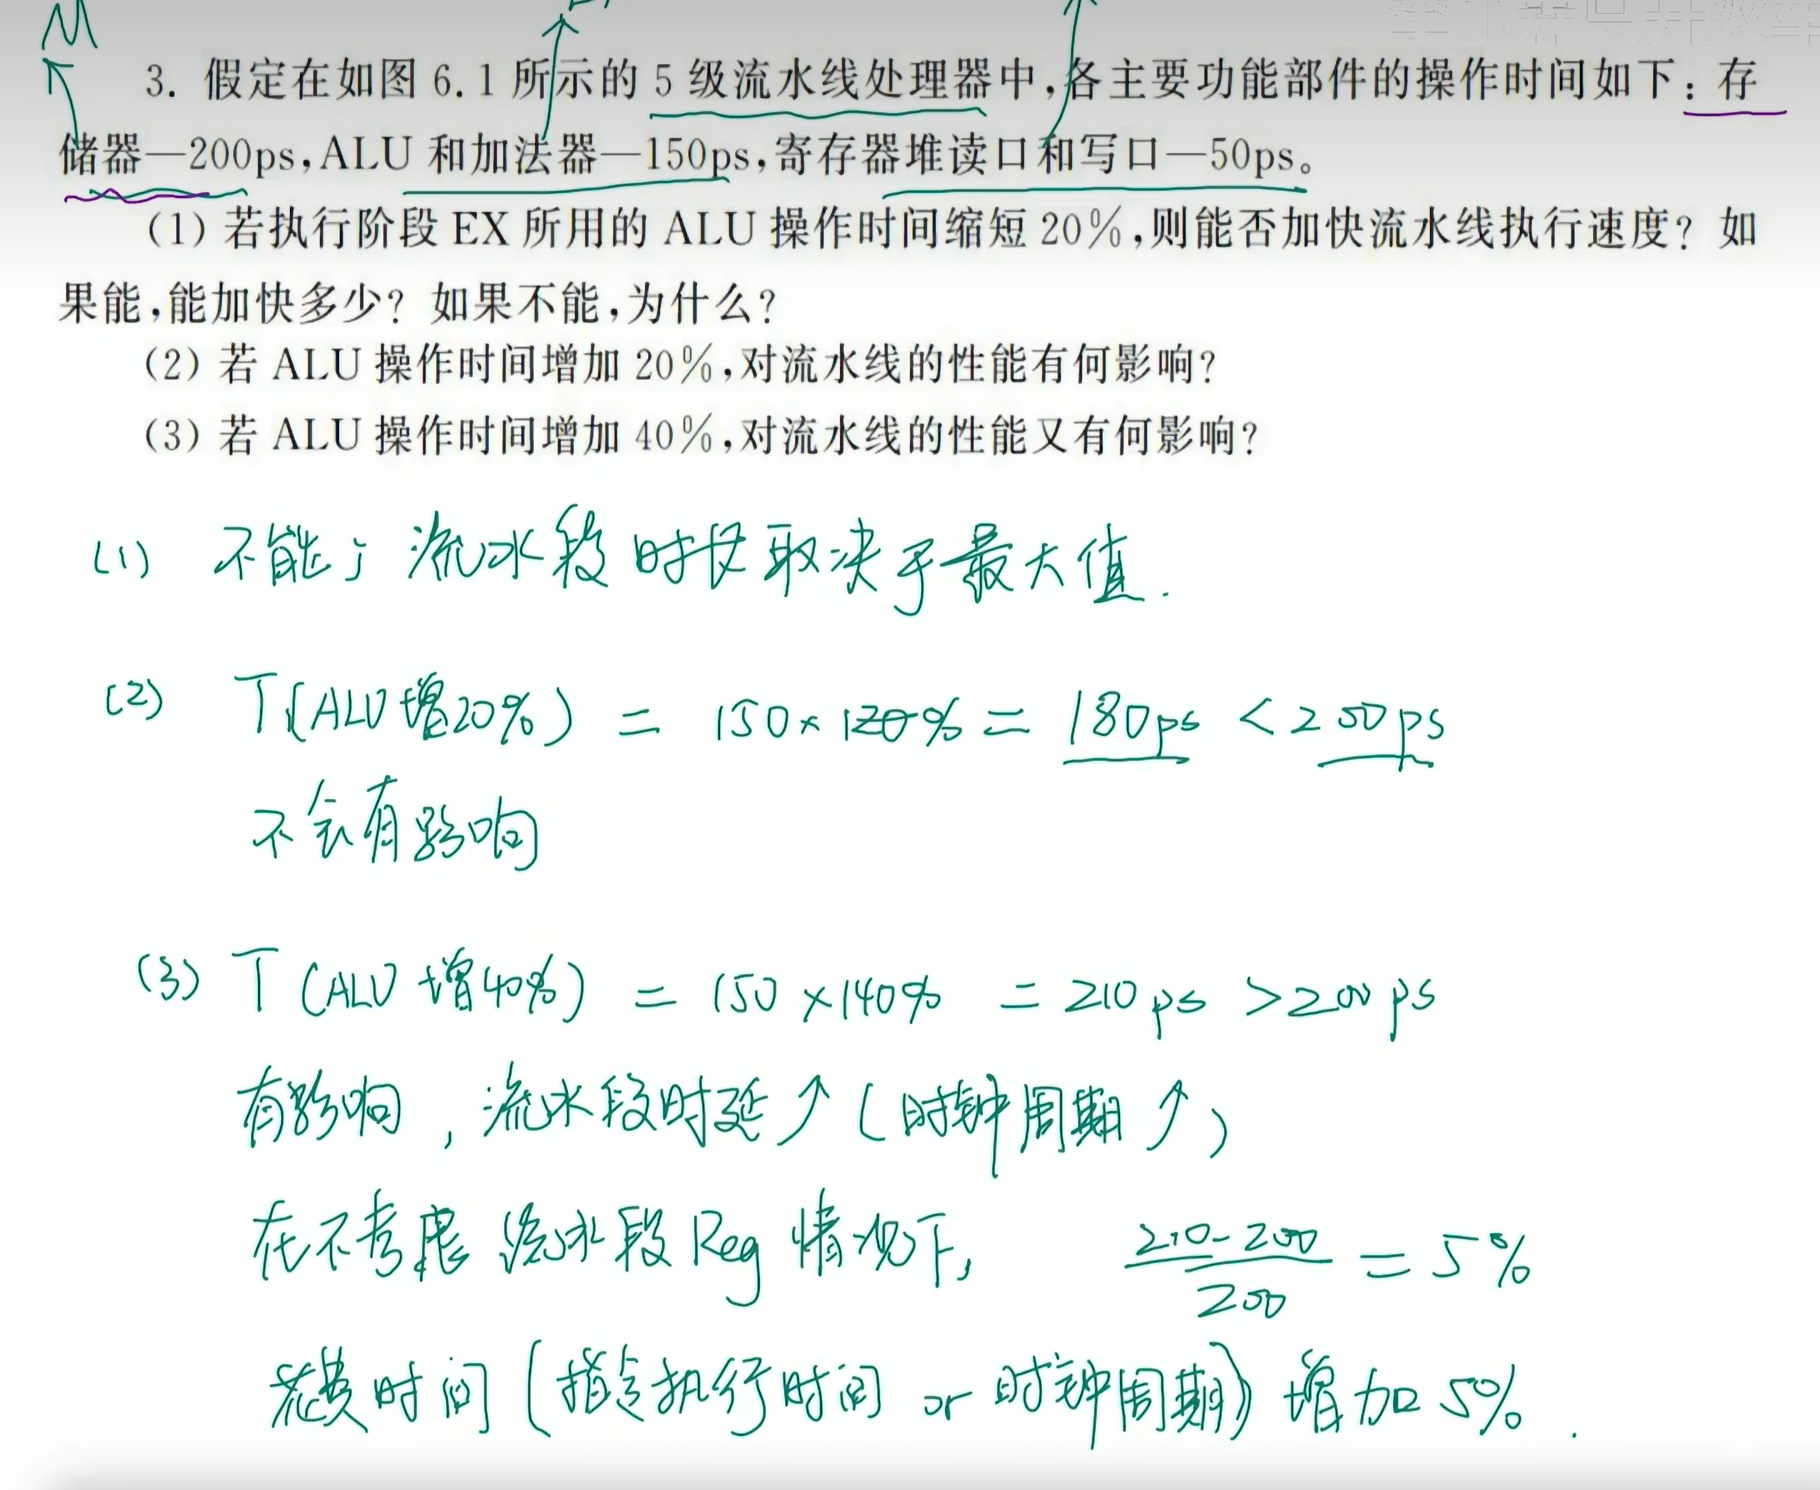 M
3. 假定在如图 6.1 所示的 5 级流水线处理器中,各主要功能部件的操作时间如下:存
储器—200ps,ALU 和加法器—150ps,寄存器堆读口和写口—50ps。
(1) 若执行阶段 EX 所用的 ALU 操作时间缩短 20%,则能否加快流水线执行速度? 如
果能,能加快多少? 如果不能,为什么?
(2) 若 ALU 操作时间增加 20%,对流水线的性能有何影响?
(3) 若 ALU 操作时间增加 40%,对流水线的性能又有何影响?
(1) 不能; 流水段时长取决于最大值.
(2) T(ALU增20%) = 150×120% = 180ps < 200ps
不会有影响
(3) T(ALU增40%) = 150×140% = 210ps > 200ps
有影响, 流水段时延↑(时钟周期↑)
在不考虑 流水段 Reg 情况下, 210-200/200 = 5%
花费时间(指令执行时间 or 时钟周期) 增加 5%.